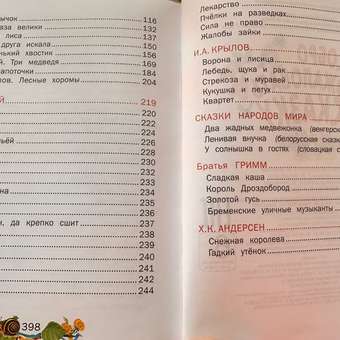 ычок ........ 116
аза велики ........ 132
лиса ........ 137
друга искала ........ 154
енький хвостик ........ 156
й. Три медведя ........ 160
лапоточки ........ 184
ов. Лесные хоромы ........ 204
Й ........ 219
........ 220
........ 222
........ 224
ьёй ........ 226
........ 228
........ 230
........ 232
........ 233
........ 234
на ........ 235
........ 236
н, да крепко сшит ........ 237
........ 238
........ 239
........ 240
........ 241
........ 242
........ 244
398
Лекарство
Пчёлки на разведках
Сила не право
Жалобы зайки
И.А. КРЫЛОВ
Ворона и лисица
Лебедь, щука и рак
Стрекоза и муравей
Кукушка и петух
Квартет
СКАЗКИ НАРОДОВ МИРА
Два жадных медвежонка (венгерск
Ленивая внучка (белорусская сказк
У солнышка в гостях (словацкая с
Братья ГРИММ
Сладкая каша
Король Дроздобород
Золотой гусь
Бременские уличные музыканты
Х.К. АНДЕРСЕН
Снежная королева
Гадкий утёнок